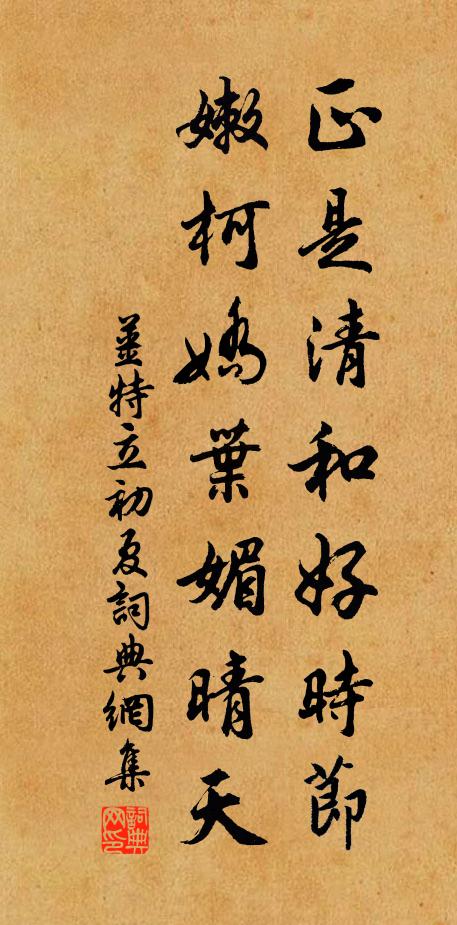 正是清和好時節
嫩柯嬌葉媚晴天
姜特立初夏詞典網集
詞典网印